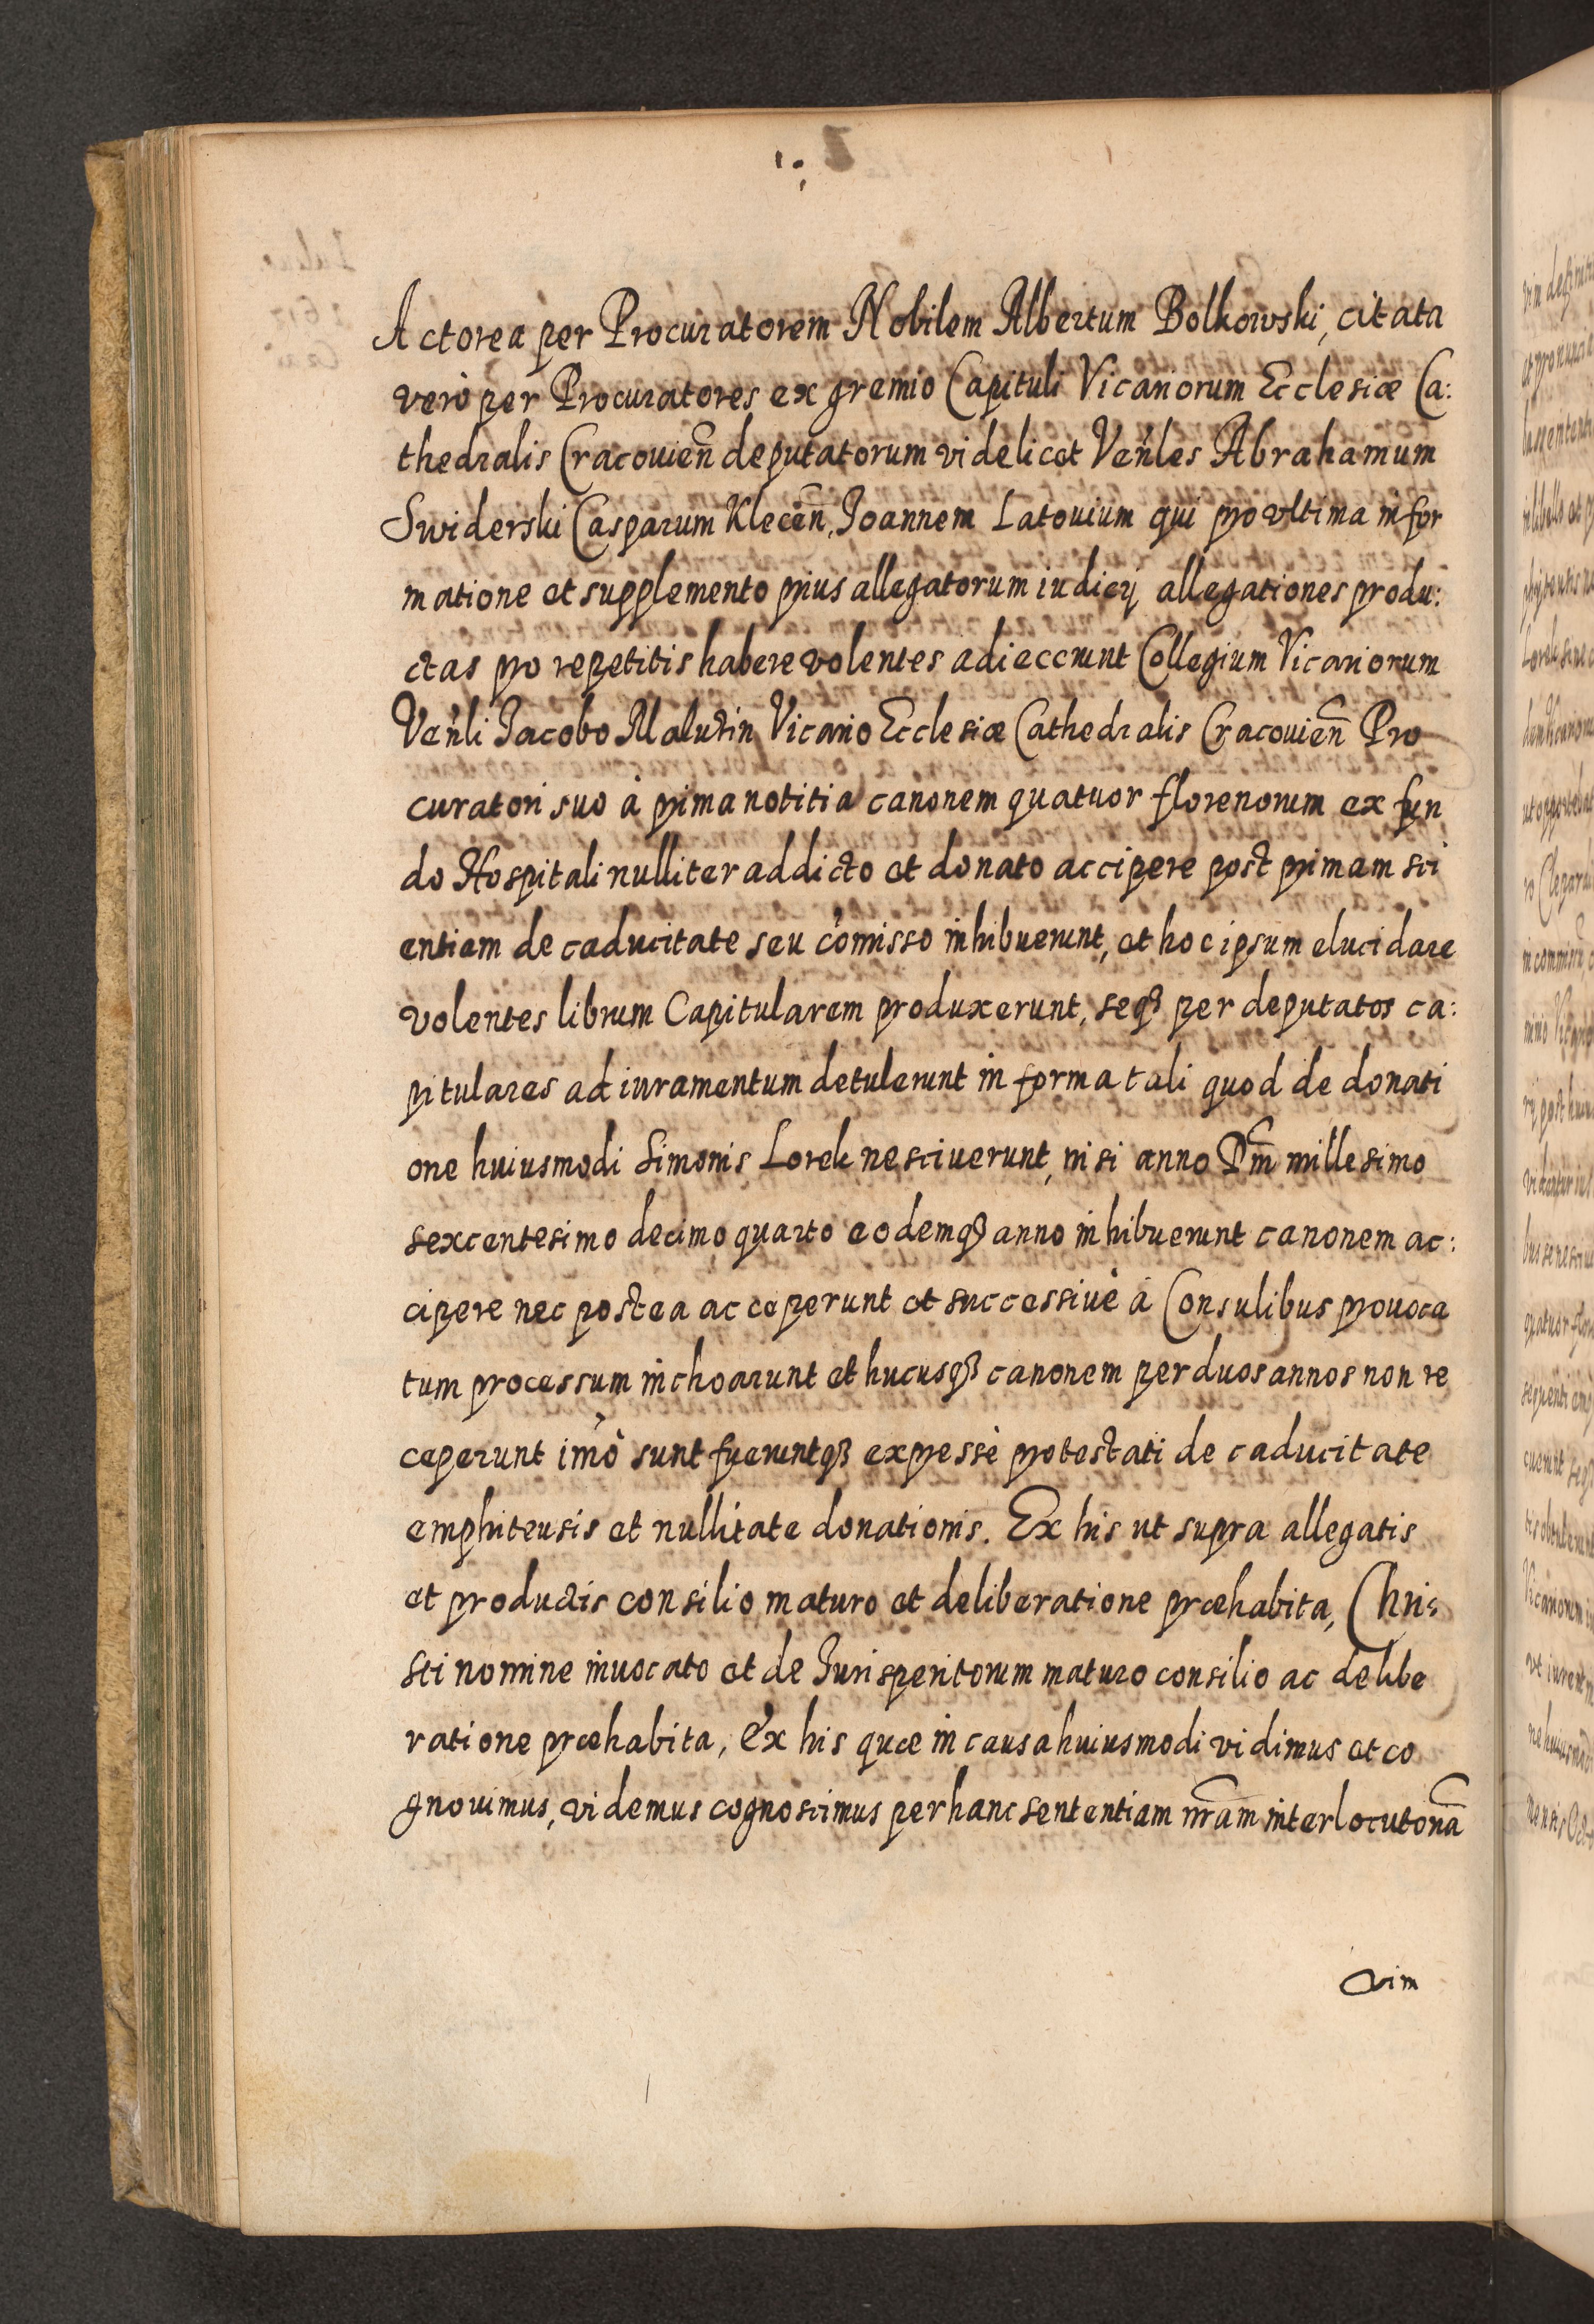 Actorea per Procuratorem Nobilem Albertum Bolkowski, citata
verò per Procuratores ex gremio Capituli Vicariorum Ecclesiæ Ca:
thedralis Cracouien̄ deputatorum videlicet Ven̄les Abrahamum
Swiderski Casparum Klecen̄, Joannem Latouium qui pro vltima infor
matione et supplemento prius allegatorum iudicij allegationes produ:
ctas pro repetitis habere volentes adiecerunt Collegium Vicariorum
Ven̄li Jacobo Malutin Vicario Ecclesiæ Cathedralis Cracouien̄ Pro
curatori suo à prima notitia canonem quatuor florenorum ex fun
do Hospitali nulliter addicto et donato accipere post primam sci
entiam de caducitate seu com̄isso inhibuerunt, et hoc ipsum elucidare
volentes librum Capitularem produxerunt, seqꝫ per deputatos ca:
pitulares ad iuramentum detulerunt in forma tali quod de donati
one huiusmodi Simonis Lorek nesciuerunt, nisi anno Dn̄i millesimo
sexcentesimo decimo quarto eodemqꝫ anno inhibuerunt canonem ac:
cipere nec postea acceperunt et successiuè à Consulibus prouoca
tum processum inchoarunt et hucusqꝫ canonem per duos annos non re
ceperunt imò sunt fueruntqꝫ expressè protestati de caducitate
emphiteusis et nullitate donationis. Ex his ut supra allegatis
et productis consilio maturo et deliberatione præhabita, Chri:
sti nomine inuocato et de Jurisperitorum maturo consilio ac delibe
ratione præhabita, Ex his quæ in causa huiusmodi vidimus et co
gnouimus, videmus cognoscimus per hanc sententiam nr̄am interlocutoriā
vim